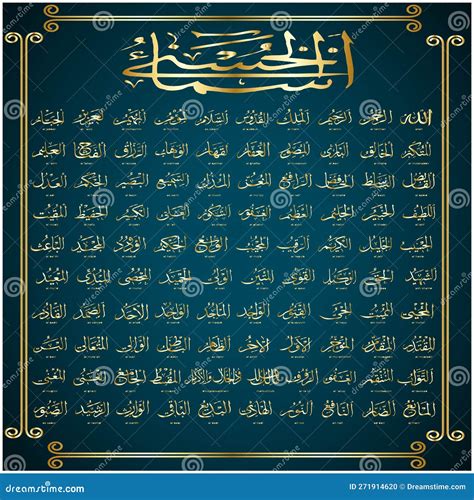 أسماء الله الحسنى
الله الرحمن الرحيم الملك القدوس السلام المؤمن المهيمن العزيز الجبار
المتكبر الخالق البارئ المصور الغفار القهار الوهاب الرزاق الفتاح العليم
القابض الباسط الخافض الرافع المعز المذل السميع البصير الحكم العدل
اللطيف الخبير الحليم العظيم الغفور الشكور العلي الكبير الحفيظ المقيت
الحسيب الجليل الكريم الرقيب المجيب الواسع الحكيم الودود المجيد الباعث
الشهيد الحق الوكيل القوي المتين الولي الحميد المحصي المبدئ المعيد
المحيي المميت الحي القيوم الواجد الماجد الواحد الاحد الصمد القادر
المقتدر المقدم المؤخر الاول الآخر الظاهر الباطن الوالي المتعالي البر
التواب المنتقم العفو الرؤوف مالك الملك ذو الجلال والإكرام المقسط الجامع الغني المغني
المانع الضار النافع النور الهادي البديع الباقي الوارث الرشيد الصبور
dreamstime.com
ID 271914620 © Dreamstime.com